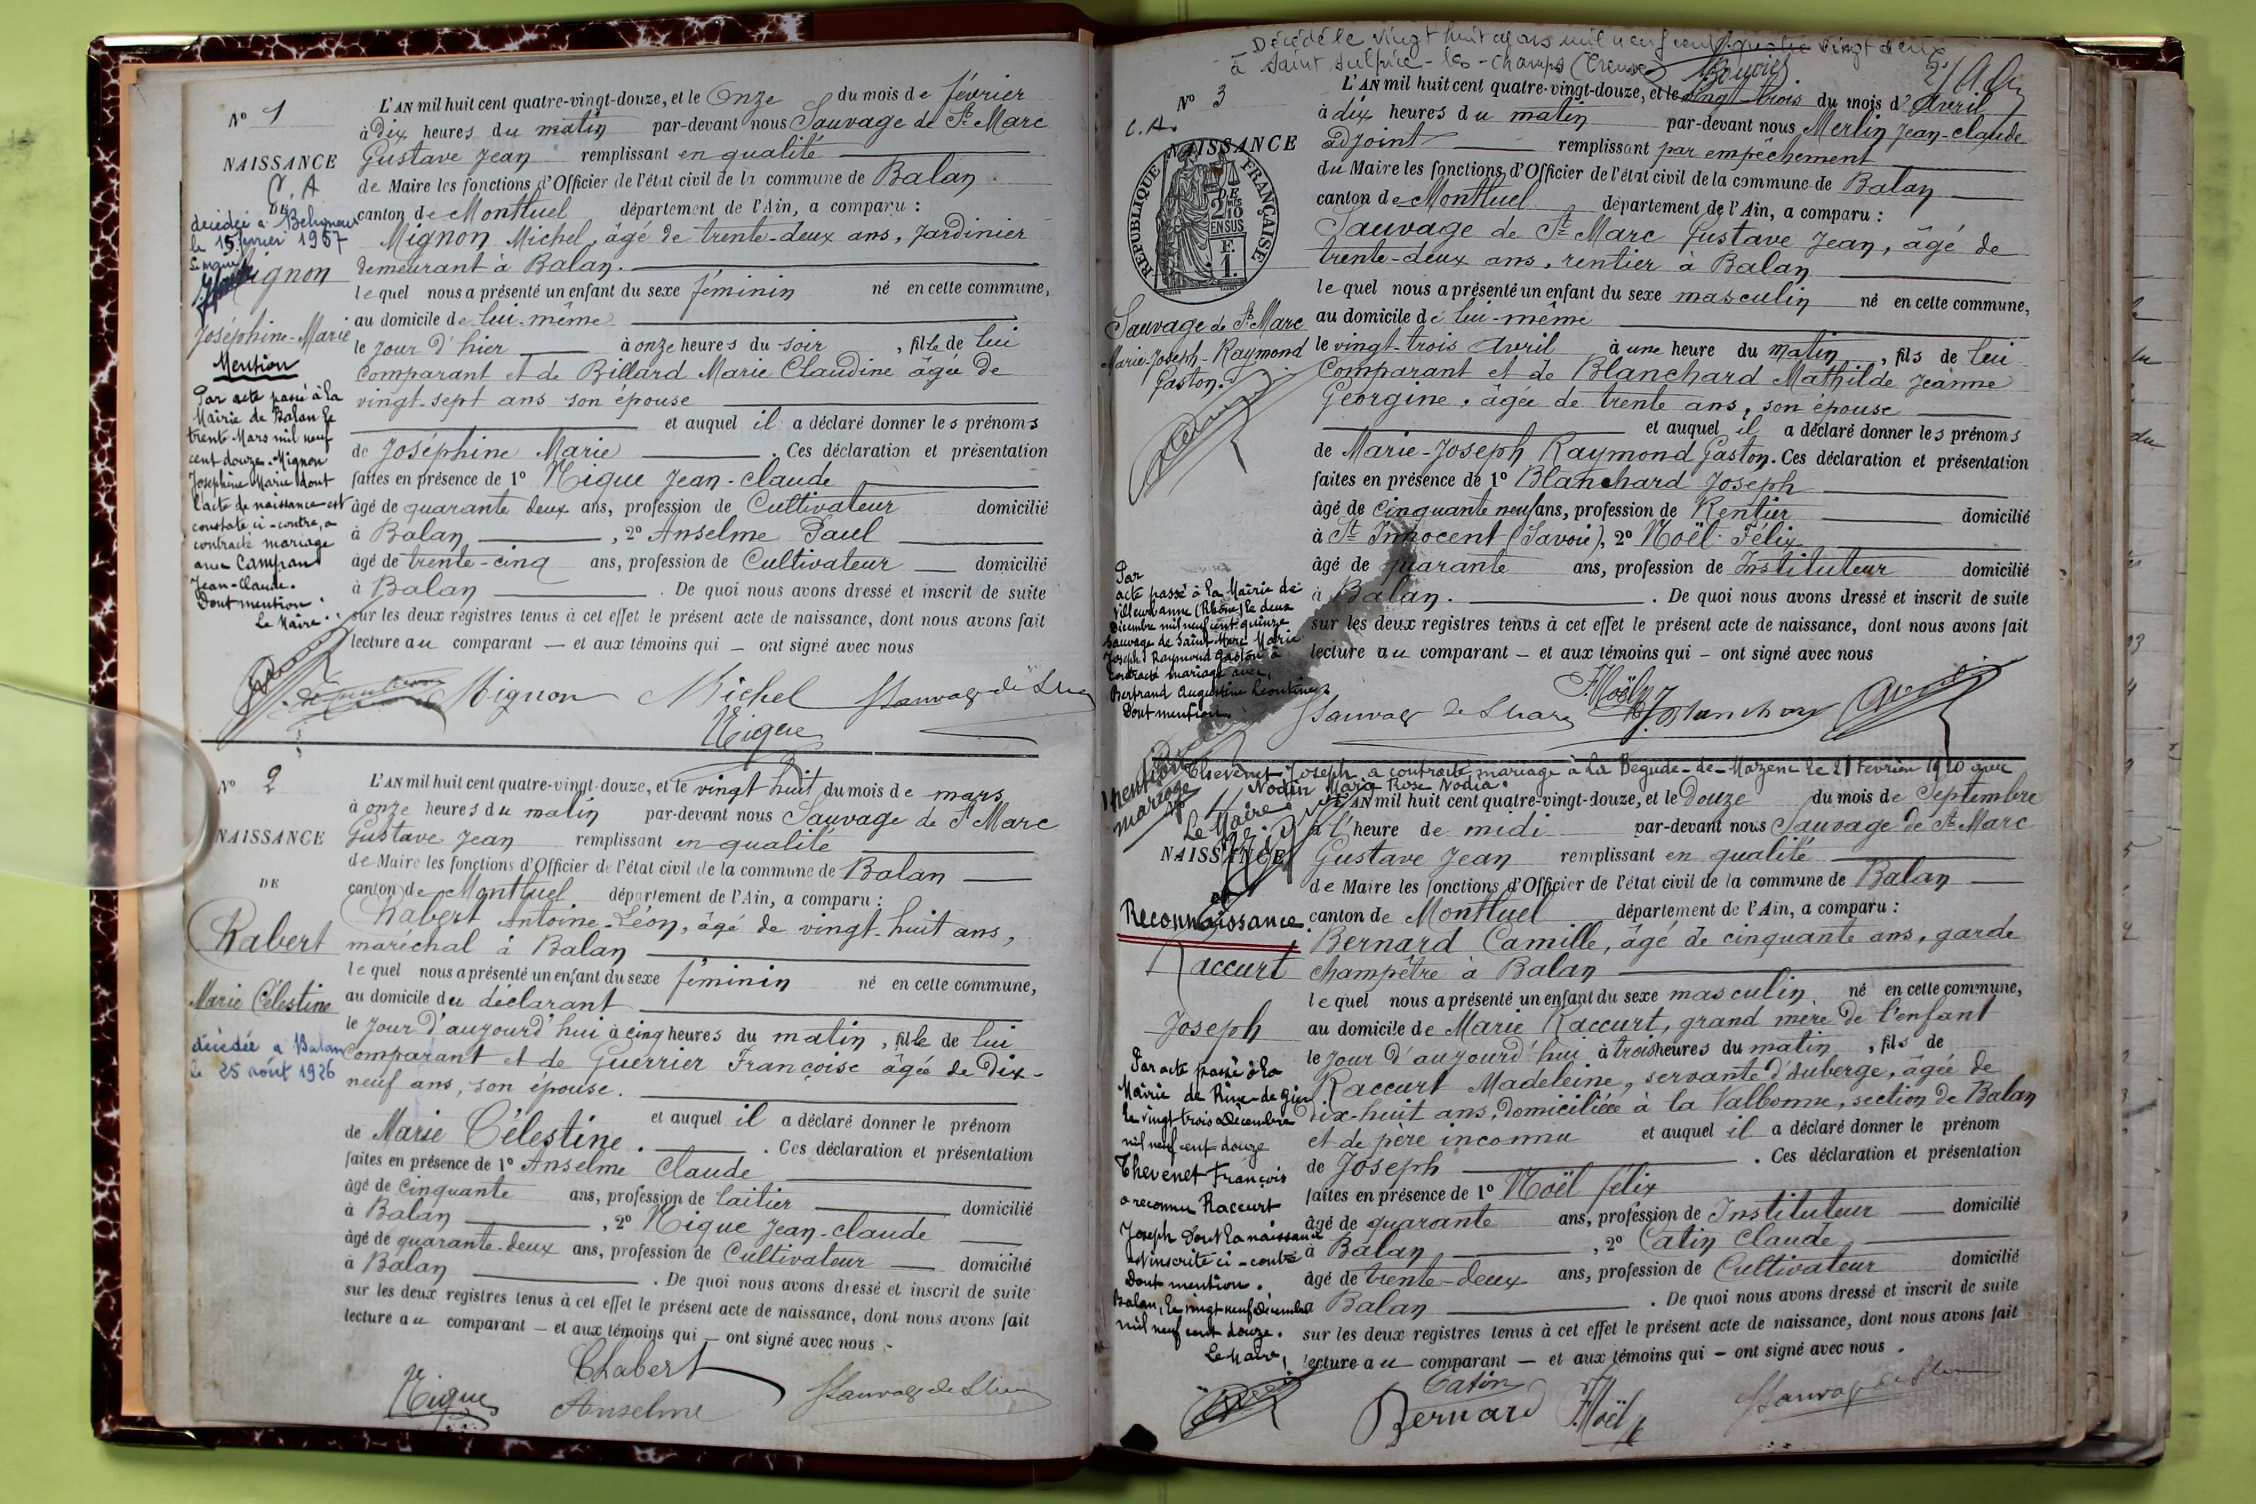 N° 1
NAISSANCE
C. A
DE
décédée à Béligneux
le 15 février 1957
Mignon
Joséphine-Marie
Mention
Par acte passé à la
Mairie de Balan le
trente Mars mil neuf
cent douze. Mignon
Joséphine Marie dont
l'acte de naissance est
constaté ci-contre, a
contracté mariage
avec Campan
Jean-Claude.
Dont mention.
Le Maire.
L'AN mil huit cent quatre-vingt-douze, et le Onze du mois de février
à Dix heures du matin par-devant nous Sauvage de St Marc
Gustave Jean remplissant en qualité
de Maire les fonctions d'Officier de l'état civil de la commune de Balan
canton de Montluel département de l'Ain, a comparu :
Mignon Michel, âgé de trente-deux ans, Jardinier
demeurant à Balan.
lequel nous a présenté un enfant du sexe féminin né en cette commune,
au domicile de lui-même
le jour d'hier à onze heures du soir, fille de lui
Comparant et de Billard Marie Claudine âgée de
vingt-sept ans son épouse
et auquel il a déclaré donner les prénoms
de Joséphine Marie. Ces déclaration et présentation
faites en présence de 1° Nique Jean-Claude
âgé de quarante deux ans, profession de Cultivateur domicilié
à Balan, 2° Anselme Paul
âgé de trente-cinq ans, profession de Cultivateur domicilié
à Balan. De quoi nous avons dressé et inscrit de suite
sur les deux registres tenus à cet effet le présent acte de naissance, dont nous avons fait
lecture au comparant — et aux témoins qui — ont signé avec nous
Mignon Michel Sauvage de St Marc
Nique
N° 2
NAISSANCE
DE
Chabert
Marie Célestine
décédée à Balan
le 25 août 1926
L'AN mil huit cent quatre-vingt-douze, et le vingt huit du mois de mars
à onze heures du matin par-devant nous Sauvage de St Marc
Gustave Jean remplissant en qualité
de Maire les fonctions d'Officier de l'état civil de la commune de Balan
canton de Montluel département de l'Ain, a comparu :
Chabert Antoine-Léon, âgé de vingt-huit ans,
maréchal à Balan
lequel nous a présenté un enfant du sexe féminin né en cette commune,
au domicile du déclarant
le jour d'aujourd'hui à cinq heures du matin, fille de lui
Comparant et de Guerrier Françoise âgée de Dix-
neuf ans, son épouse.
et auquel il a déclaré donner le prénom
de Marie Célestine. Ces déclaration et présentation
faites en présence de 1° Anselme Claude
âgé de Cinquante ans, profession de laitier domicilié
à Balan, 2° Nique Jean-Claude
âgé de quarante-deux ans, profession de Cultivateur domicilié
à Balan. De quoi nous avons dressé et inscrit de suite
sur les deux registres tenus à cet effet le présent acte de naissance, dont nous avons fait
lecture au comparant — et aux témoins qui — ont signé avec nous.
Chabert
Nique Anselme Sauvage de St Marc
Décédé le vingt huit mars mil neuf cent quatre vingt deux
à Saint Sulpice-les-Champs (Creuse)
N° 3
C. A.
NAISSANCE
DE
RÉPUBLIQUE FRANÇAISE
2/10
EN SUS
F.
1.
Sauvage de St Marc
Marie-Joseph-Raymond
Gaston.
Par
acte passé à la Mairie de
Villeurbanne (Rhône) le deux
Décembre mil neuf cent quinze
Sauvage de Saint-Marc Marie
Joseph Raymond Gaston a
contracté mariage avec,
Bertrand Augustine Léontine
Dont mention.
L'AN mil huit cent quatre-vingt-douze, et le vingt-trois du mois d'Avril
à dix heures du matin par-devant nous Merlin Jean-Claude
Adjoint remplissant par empêchement
du Maire les fonctions d'Officier de l'état civil de la commune de Balan
canton de Montluel département de l'Ain, a comparu :
Sauvage de St Marc Gustave Jean, âgé de
trente-deux ans, rentier à Balan
lequel nous a présenté un enfant du sexe masculin né en cette commune,
au domicile de lui-même
le vingt-trois Avril à une heure du matin, fils de lui
Comparant et de Blanchard Mathilde Jeanne
Georgine, âgée de trente ans, son épouse
et auquel il a déclaré donner les prénoms
de Marie-Joseph Raymond Gaston. Ces déclaration et présentation
faites en présence de 1° Blanchard Joseph
âgé de Cinquante neuf ans, profession de Rentier domicilié
à St Innocent (Savoie), 2° Noël Félix
âgé de quarante ans, profession de Instituteur domicilié
à Balan. De quoi nous avons dressé et inscrit de suite
sur les deux registres tenus à cet effet le présent acte de naissance, dont nous avons fait
lecture au comparant — et aux témoins qui — ont signé avec nous
F. Noël
Sauvage de St Marc J. Blanchard
Mention
mariage
Thévenet Joseph a contracté mariage à La Bégude-de-Mazenc le 21 Février 1920 avec
Nodin Maria Rose Nodia.
Le Maire
NAISSANCE
et
Reconnaissance
Raccurt
Joseph
Par acte passé à la
Mairie de Rive-de-Gier
le vingt trois Décembre
mil neuf cent douze
Thévenet François
a reconnu Raccurt
Joseph Dont la naissance
est inscrite ci-contre
Dont mention.
Balan, le vingt neuf décembre
mil neuf cent douze.
Le Maire,
L'AN mil huit cent quatre-vingt-douze, et le Douze du mois de Septembre
à l'heure de midi par-devant nous Sauvage de St Marc
Gustave Jean remplissant en qualité
de Maire les fonctions d'Officier de l'état civil de la commune de Balan
canton de Montluel département de l'Ain, a comparu :
Bernard Camille, âgé de cinquante ans, garde
champêtre à Balan
lequel nous a présenté un enfant du sexe masculin né en cette commune,
au domicile de Marie Raccurt, grand mère de l'enfant
le jour d'aujourd'hui à trois heures du matin, fils de
Raccurt Madeleine, servante d'auberge, âgée de
dix-huit ans, domiciliée à la Valbonne, section de Balan
et de père inconnu et auquel il a déclaré donner le prénom
de Joseph. Ces déclaration et présentation
faites en présence de 1° Noël félix
âgé de quarante ans, profession de Instituteur domicilié
à Balan, 2° Catin Claude
âgé de trente-deux ans, profession de Cultivateur domicilié
à Balan. De quoi nous avons dressé et inscrit de suite
sur les deux registres tenus à cet effet le présent acte de naissance, dont nous avons fait
lecture au comparant — et aux témoins qui — ont signé avec nous.
Catin
Bernard F. Noël Sauvage de St Marc